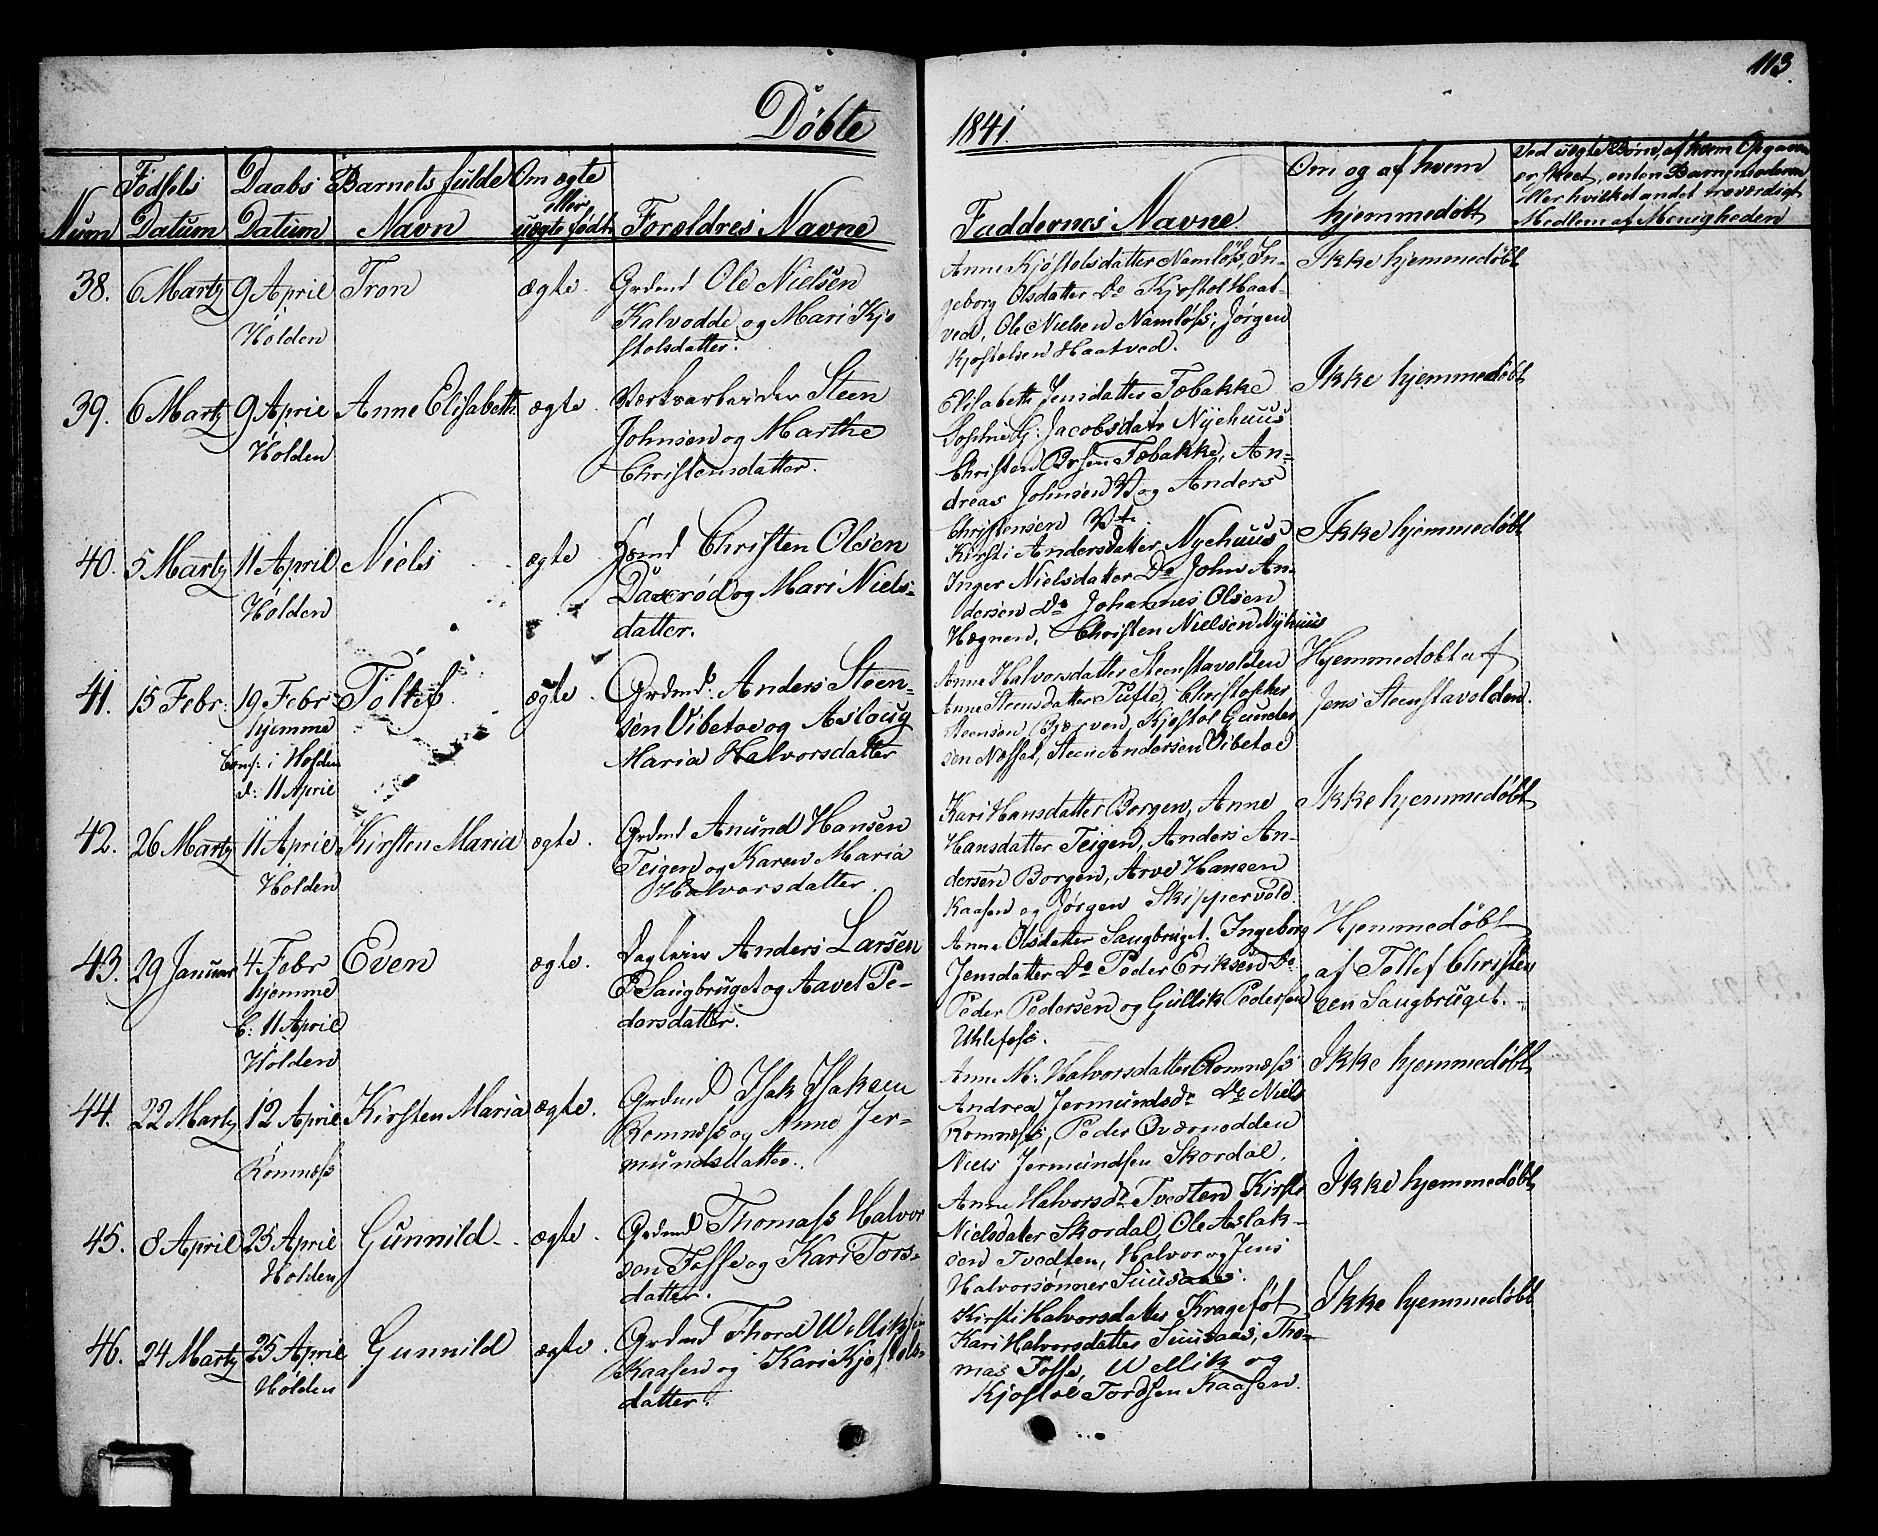 113.
Døbte
1841.
Num
Fødsels Datum
Daabs Datum
Barnets fulde Navn
Om ægte eller uægte født
Forældres Navne
Faddernes Navne
Om og af hvem hjemmedøbt
Ved uægte Børn, af hvem Opgaven
er skeet, enten Barnemoderen
eller hvilket andet troværdigt
Medlem af Menigheden
38. 6 Martz 9 April Tron ægte. Grdmd Ole Nielsen
Holden
Kalvodde og Mari Kjø
stolsdatter.
Anne Kjøstolsdatter Namløs, In-
geborg Olsdatter Do Kjøstol Haat-
ved, Ole Nielsen Namløss, Jørgen
Kjøstolsen Haatved.
Ikke hjemmedøbt
39. 6 Martz 9 April Anne Elisabeth ægte. Værksarbeider Steen
Holden
Johnsen og Marthe
Christensdatter.
Elisabeth Jensdatter Tobakke
Sophie G: Jacobsdatr Nyehuus
Christen Tobakke, An-
dreas Johnsen og Anders
Christensen
Ikke hjemmedøbt
40. 5 Martz 11 April Niels ægte Christen Olsen
Holden
Daxrød og Mari Niels-
datter.
Kirsti Andersdatter Nyehuus
Inger Nielsdatter Do John An-
dersen Do Johannes Olsen
Hægnen, Christen Nielsen Nyhuus
Ikke hjemmedøbt
41. 15 Febr. 19 Febr Tollef ægte. Grdmd. Anders Steen-
hjemme
Conf: i Holden
d: 11 April
sen Vibetoe og Asloug
Maria Halvorsdatter
Anne Halvorsdatter Steenstavolden
Anne Steensdatter Tufte, Christopher
Steensen Bjerven, Kjøstol Gunder
sen Næsset, Steen Andersen Vibetoe
Hjemmedøbt af
Jens Steenstavolden.
42. 26 Martz 11 April Kirsten Maria ægte. Grdmd Anund Hansen
Holden
Teigen og Karen Maria
Halvorsdatter.
Kari Hansdatter Borgen, Anne
Hansdatter Teigen, Anders An-
dersen Borgen, Arve Hansen
Kaasen og Jørgen Skippervold.
Ikke hjemmedøbt
43. 29 Januar 4 Febr Even ægte. Daglein Anders Larsen
hjemme
C. 11 April
Holden
Saugbruget og Aavet Pe-
dersdatter.
Anne Olsdatter Saugbruget. Ingeborg
Jensdatter Do Peder Eriksen Do
Peder Pedersen og Gullik Pedersen
Uhlefoss.
Hjemmedøbt
af Tollef Christen
sen Saugbruget.
44. 22 Martz 12 April Kirsten Maria ægte. Grdmd Isak Isaksen
Romnæss
Romnæss og Anne Jer-
mundsdatter.
Anne M: Halvorsdatter Romnæss
Andrea Jermundsdr Do Niels
Romnæss, Peder Oværnodden
Niels Jermundsen Skordal.
Ikke hjemmedøbt
45. 8 April 25 April Gunnild ægte. Grdmd Thomas Halvor
Holden
sen Fosse og Kari Tors-
datter.
Anne Halvorsdr Tvedten Kirsti
Nielsdatter Skordal, Ole Aslak-
sen Tvedten, Halvor og Jens
Halvorsønner Suusaas.
Ikke hjemmedøbt
46. 24 Martz 25 April Gunnild ægte. Grdmd Thord Williksen
Holden
Kaasen og Kari Kjøstols-
datter.
Kirsti Halvorsdatter Kragefot
Kari Halvorsdatter Suusaas, Tho-
mas Fosse, Wellik og
Kjøstol Tordsen Kaasen.
Ikke hjemmedøbt